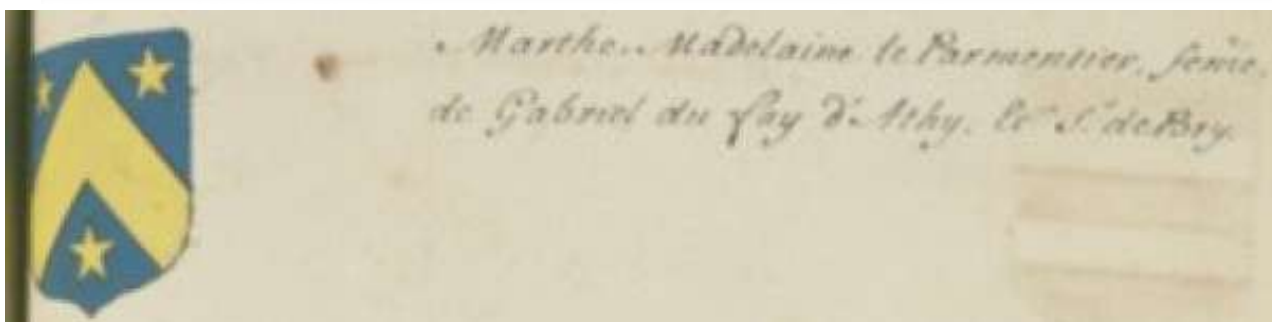 Marthe Madelaine le Parmentier, feme.
de Gabriel du Fay d'Athy. Ec. Sr. de Bry.